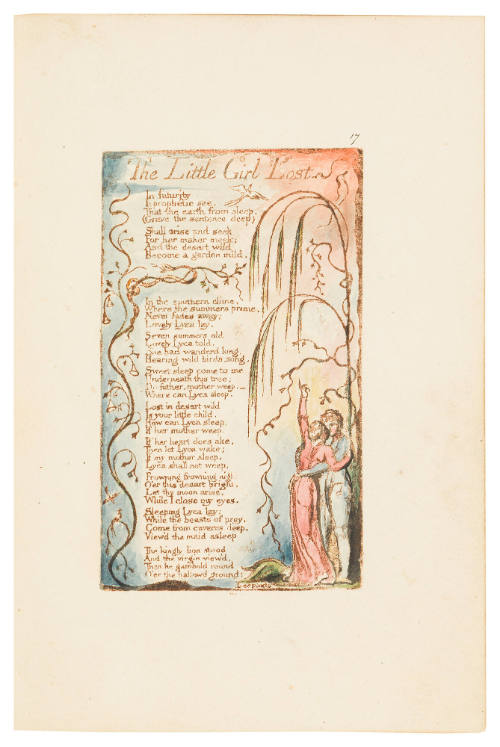 17
The Little Girl Lost
In futurity
I prophetic see,
That the earth from sleep,
(Grave the sentence deep)
Shall arise and seek
For her maker meek:
And the desart wild
Become a garden mild.
In the southern clime,
Where the summers prime,
Never fades away;
Lovely Lyca lay.
Seven summers old
Lovely Lyca told,
She had wanderd long,
Hearing wild birds song.
Sweet sleep come to me
Underneath this tree;
Do father, mother weep.—
Where can Lyca sleep.
Lost in desart wild
Is your little child.
How can Lyca sleep,
If her mother weep.
If her heart does ake,
Then let Lyca wake;
If my mother sleep,
Lyca shall not weep.
Frowning frowning night,
O'er this desart bright,
Let thy moon arise,
While I close my eyes.
Sleeping Lyca lay;
While the beasts of prey,
Come from caverns deep,
View'd the maid asleep
The kingly lion stood
And the virgin view'd,
Then he gambold round
O'er the hallowd ground:
Leopards